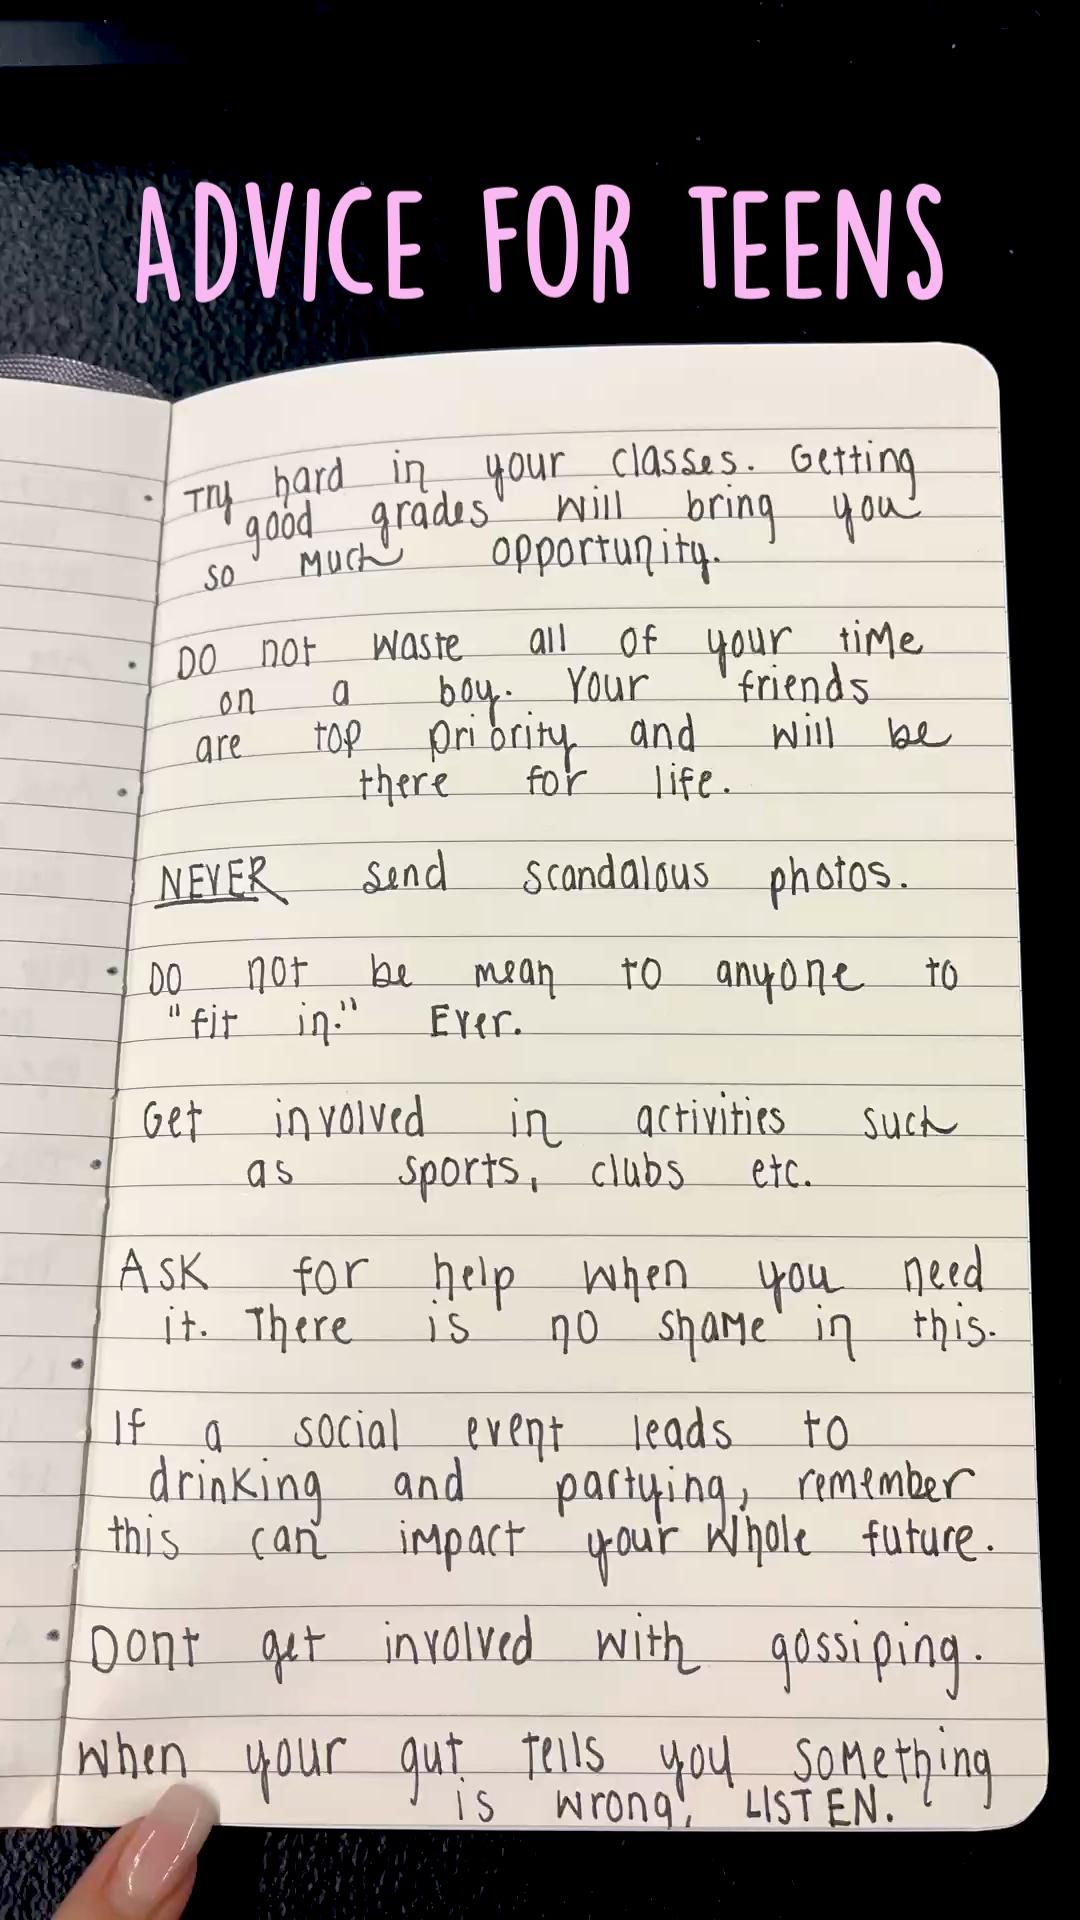 ADVICE FOR TEENS
• Try hard in your classes. Getting
good grades will bring you
so much opportunity.
• Do not waste all of your time
on a boy. Your friends
are top priority and will be
there for life.
• NEVER send scandalous photos.
• Do not be mean to anyone to
"fit in." Ever.
Get involved in activities such
• as sports, clubs etc.
Ask for help when you need
it. There is no shame in this.
• If a social event leads to
drinking and partying, remember
this can impact your whole future.
• Dont get involved with gossiping.
When your gut tells you something
is wrong, LISTEN.